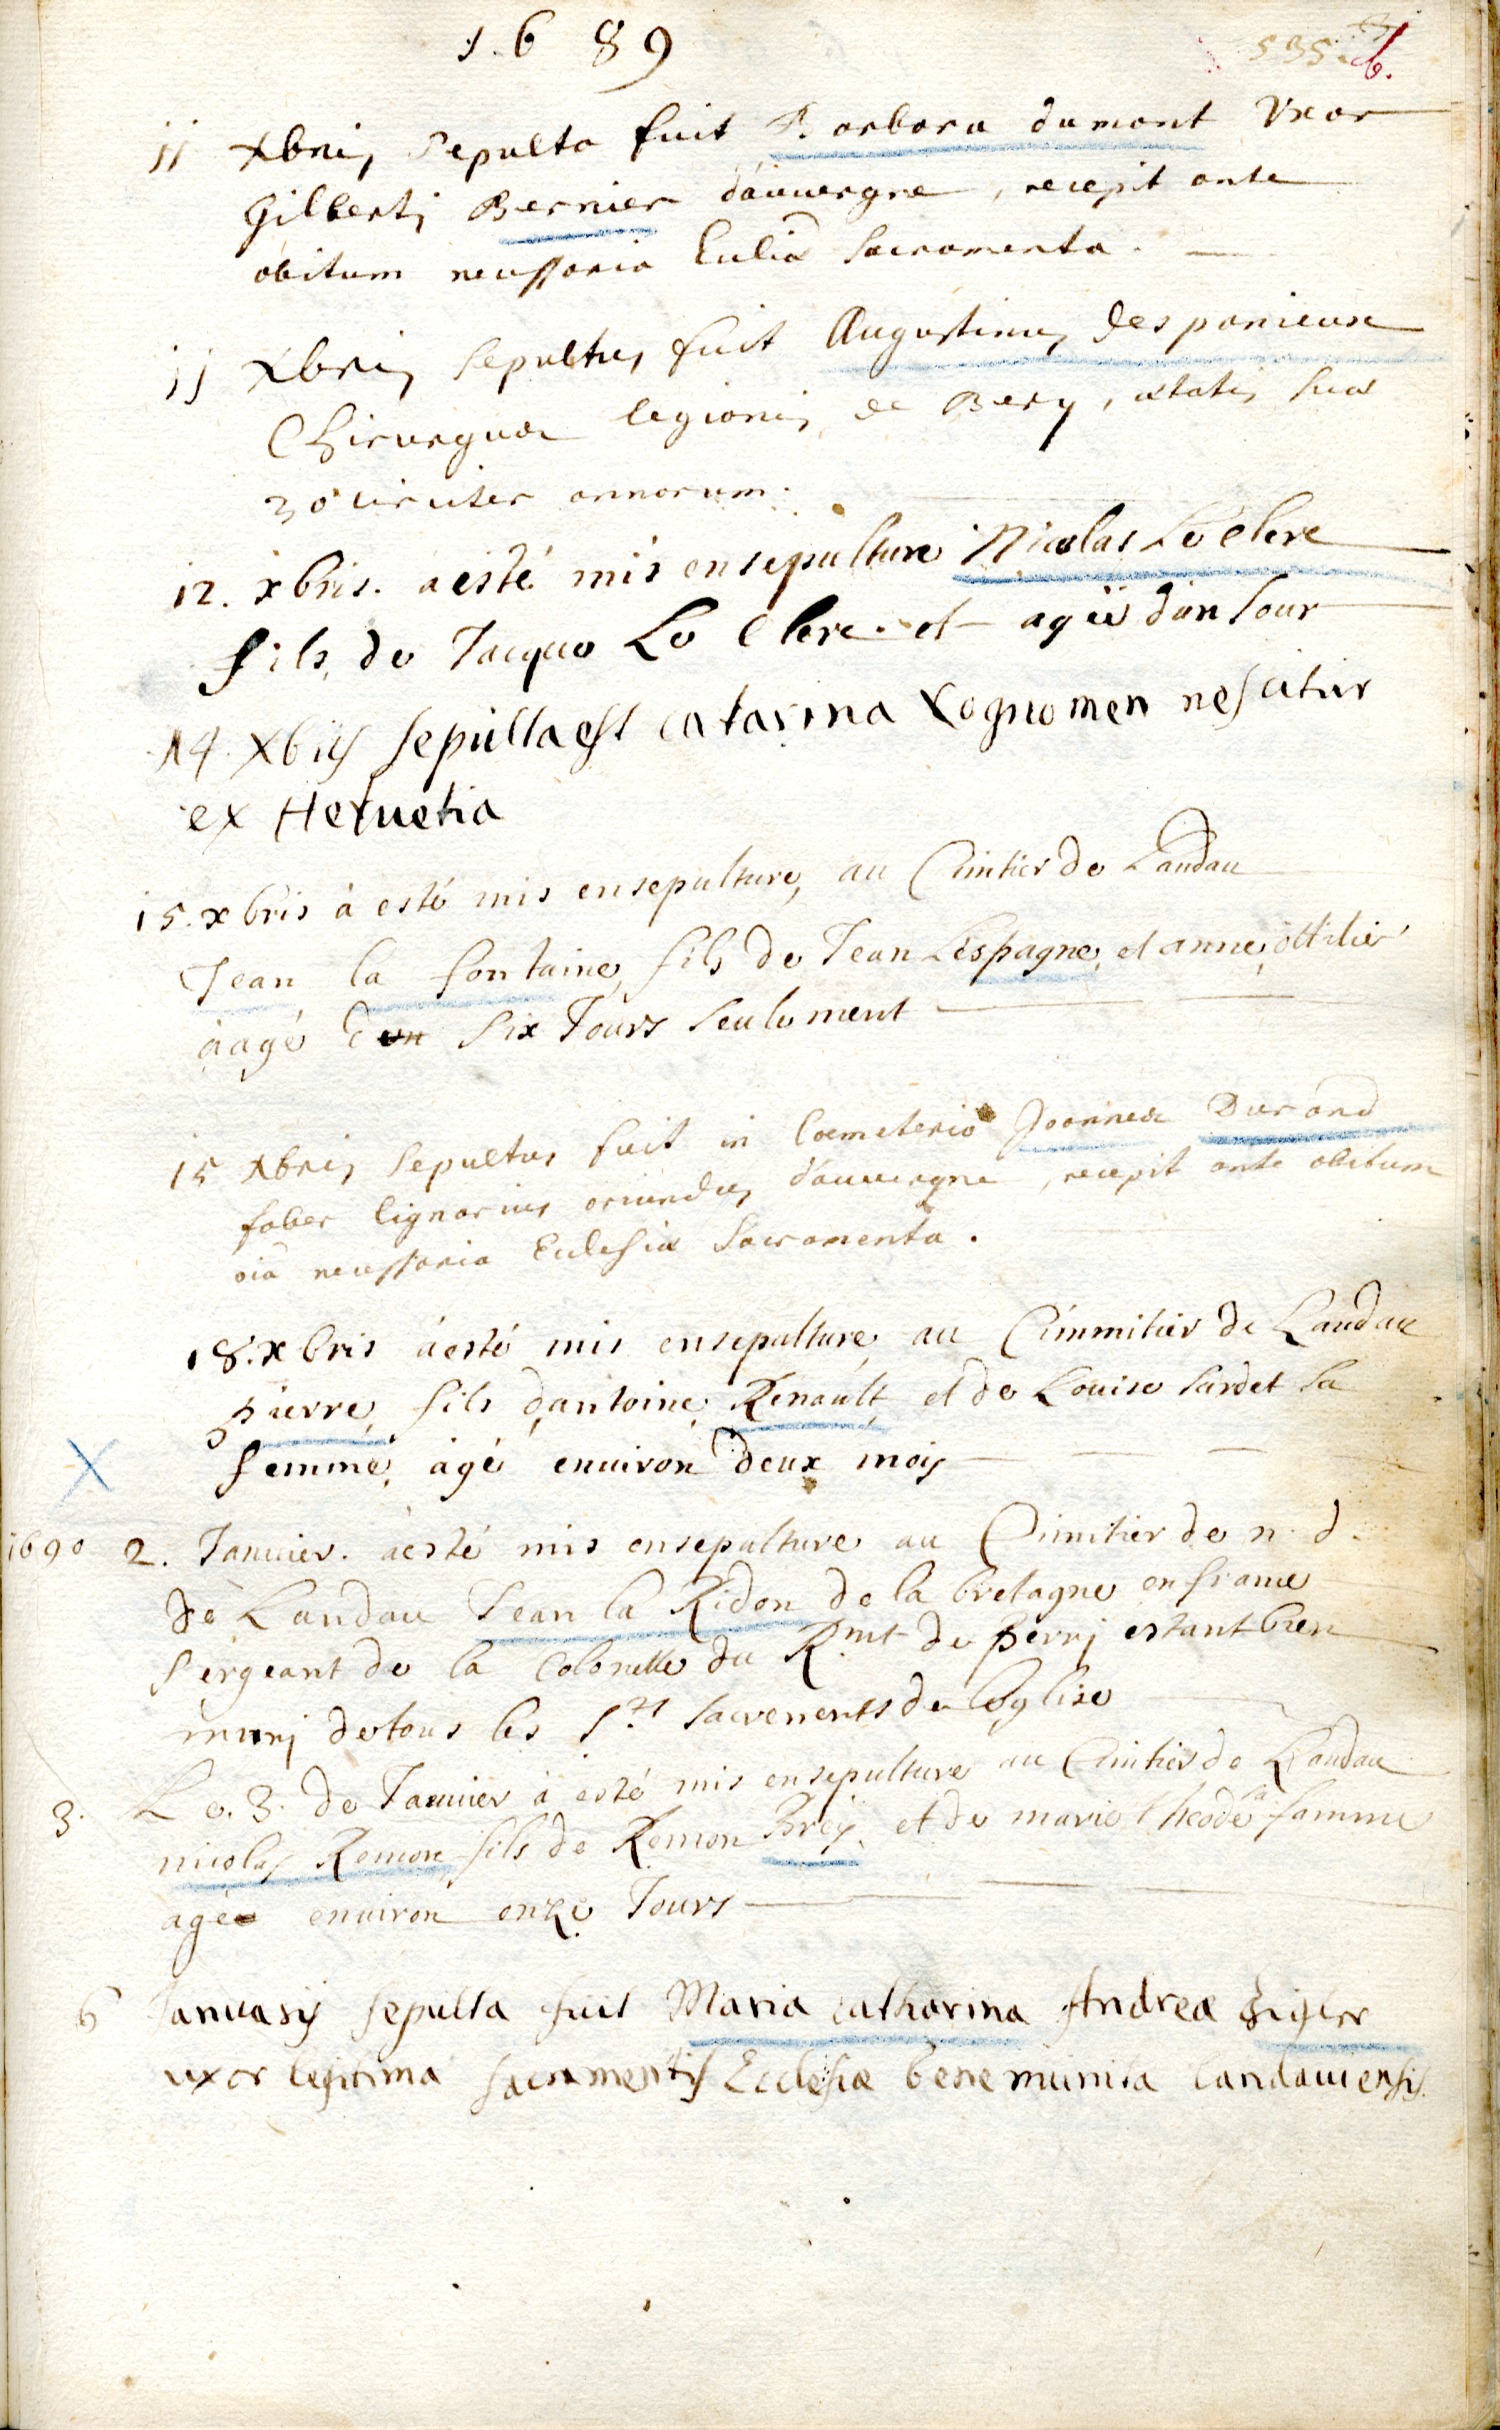 1689
535. 6.
11 Xbris Sepulta fuit Barbara dumont Vxor
Gilberti Bernier d'auuergne, recepit ante
obitum necessaria Eccliæ Sacramenta.
11 Xbris Sepultus fuit Augustinus des panieux
Chirurgus legionis de Bery, ætatis suæ
30 circiter annorum.
12. xbris. a esté mis en sepulture Nicolas Le Clerc
fils de Jacque Le Clerc et agée d'un Jour
14. Xbris sepulta est catarina Cognomen nescitur
ex Heluetia
15. xbris à esté mis en sepulture, au Cimtier de Landau
Jean la fontaine, fils de Jean Lespagne, et anne ottilie
aagé d'un six Jours seulement
15 Xbris Sepultus fuit in Coemeterio Joannes Durand
faber lignarius oriundus d'auuergne, recepit ante obitum
oia necessaria Ecclesiæ Sacramenta.
18. xbris à esté mis en sepulture, au Cimmitier de Landau
pierre, fils d'antoine Renault et de Louise Sardet sa
femme, agé enuiron deux mois
1690 2. Januier. à esté mis en sepulture au Cimitier de n. d.
de Landau Jean la Ridon de la bretagne en france
Sergeant de la Colonelle du R.mt de berrj estant bien
munj de tous les S.ts sacrements de leglise
3. Le. 3. de Januier à esté mis en sepulture au Cimtier de Landau
nicolas Remon fils de Remon Brey et de marie theode sa famme
agée enuiron onze Jours
6 Januarij sepulta fuit Maria catharina Andreæ Zigler
uxor legitima sacramentis Ecclesiæ bene munita landauiensis.